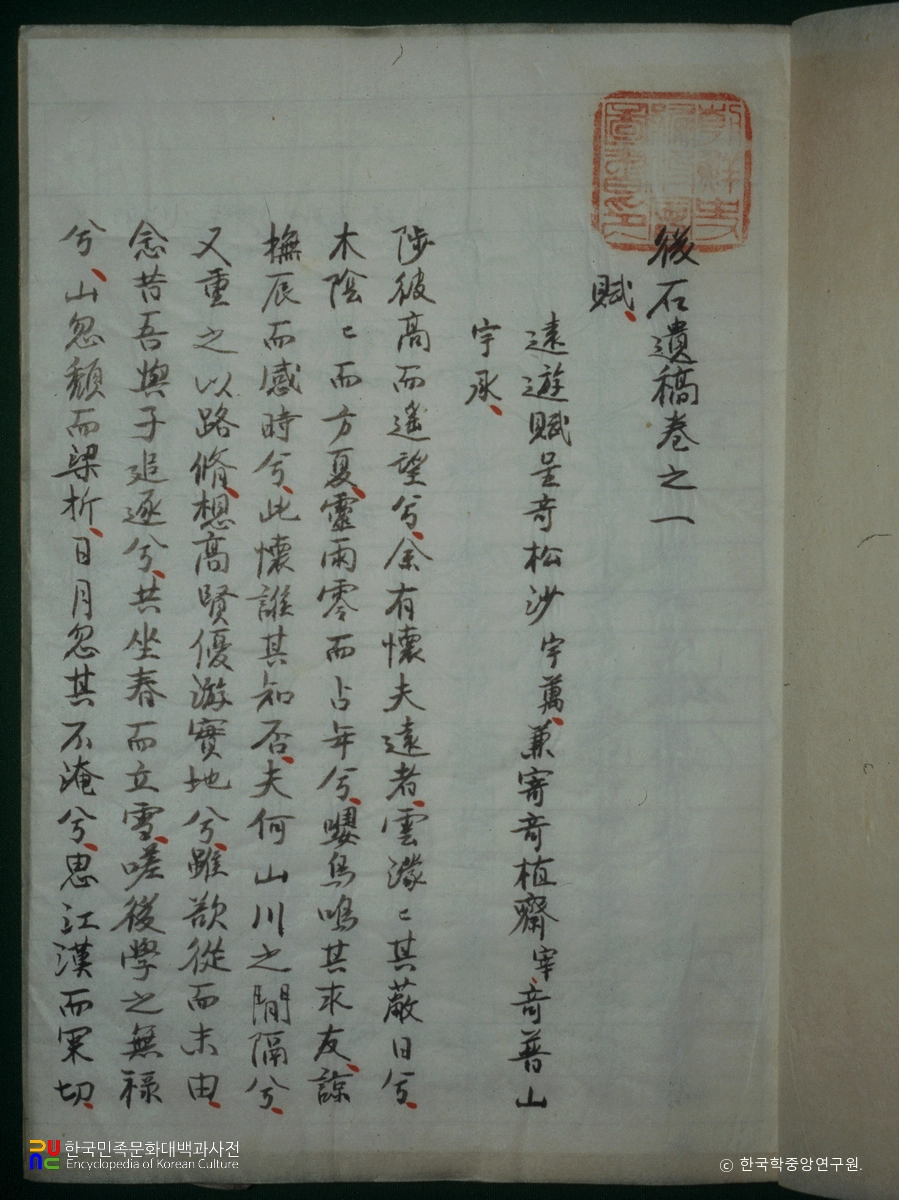 後石遺稿卷之一
賦、
遠遊賦呈奇松沙宇萬、兼寄奇植齋宰、奇普山
宇承、
陟彼高而遙望兮、余有懷夫遠者、雲濛〻其蔽日兮、
木陰〻而方夏、靈雨零而占年兮、嚶鳥鳴其求友、諒
撫辰而感時兮、此懷誰其知否、夫何山川之間隔兮、
又重之以路脩、想高賢優游寶地兮、雖欲從而未由、
念昔吾與子追逐兮、共坐春而立雪、嗟後學之無祿
兮、山忽頹而梁折、日月忽其不淹兮、思江漢而冞切、
한국민족문화대백과사전
Encyclopedia of Korean Culture
© 한국학중앙연구원.